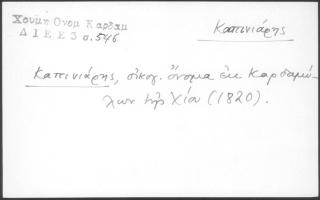 Χουμη Ονομ Καρδαμ
ΔΙΕΕ 3 σ.546
Καπινιάρης
Καπινιάρης, οἰκογ. ὄνομα ἐκ Καρδαμύ-
λων τῆς Χίου (1820).